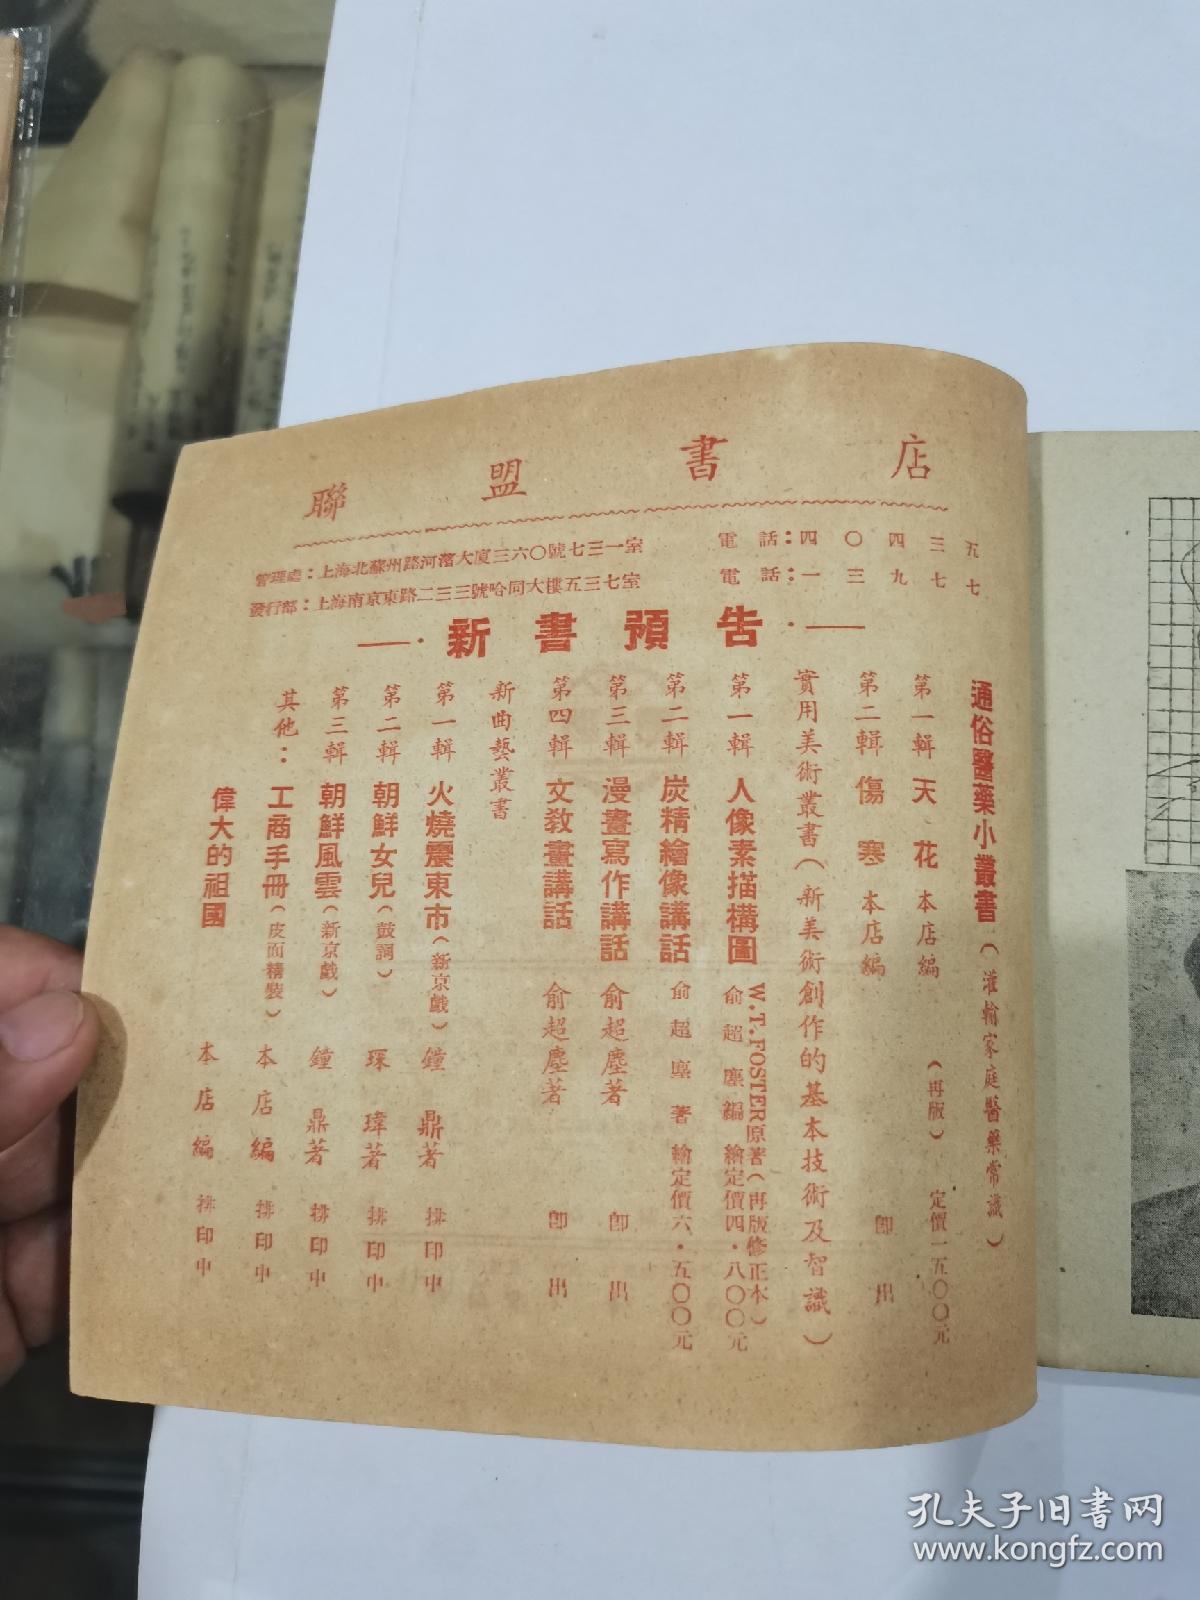 聯盟書店
管理處：上海北蘇州路河濱大廈三六〇號七三一室　電話：四〇四三五
發行部：上海南京東路二三三號哈同大樓五三七室　電話：一三九七七
新書預告
通俗醫藥小叢書（灌輸家庭醫藥常識）
第一輯 天花 本店編 （再版） 定價一五〇〇元
第二輯 傷寒 本店編 即出
實用美術叢書（新美術創作的基本技術及智識）
第一輯 人像素描構圖 W.T.FOSTER原著（再版修正本） 俞超塵編繪 定價四·八〇〇元
第二輯 炭精繪像講話 俞超塵著繪 定價六·五〇〇元
第三輯 漫畫寫作講話 俞超塵著 即出
第四輯 文教畫講話 俞超塵著 即出
新曲藝叢書
第一輯 火燒震東市（新京戲） 鐘鼎著 排印中
第二輯 朝鮮女兒（鼓詞） 琛瑋著 排印中
第三輯 朝鮮風雲（新京戲） 鐘鼎著 排印中
其他：工商手冊（皮面精裝） 本店編 排印中
偉大的祖國 本店編 排印中
孔夫子旧书网
www.kongfz.com